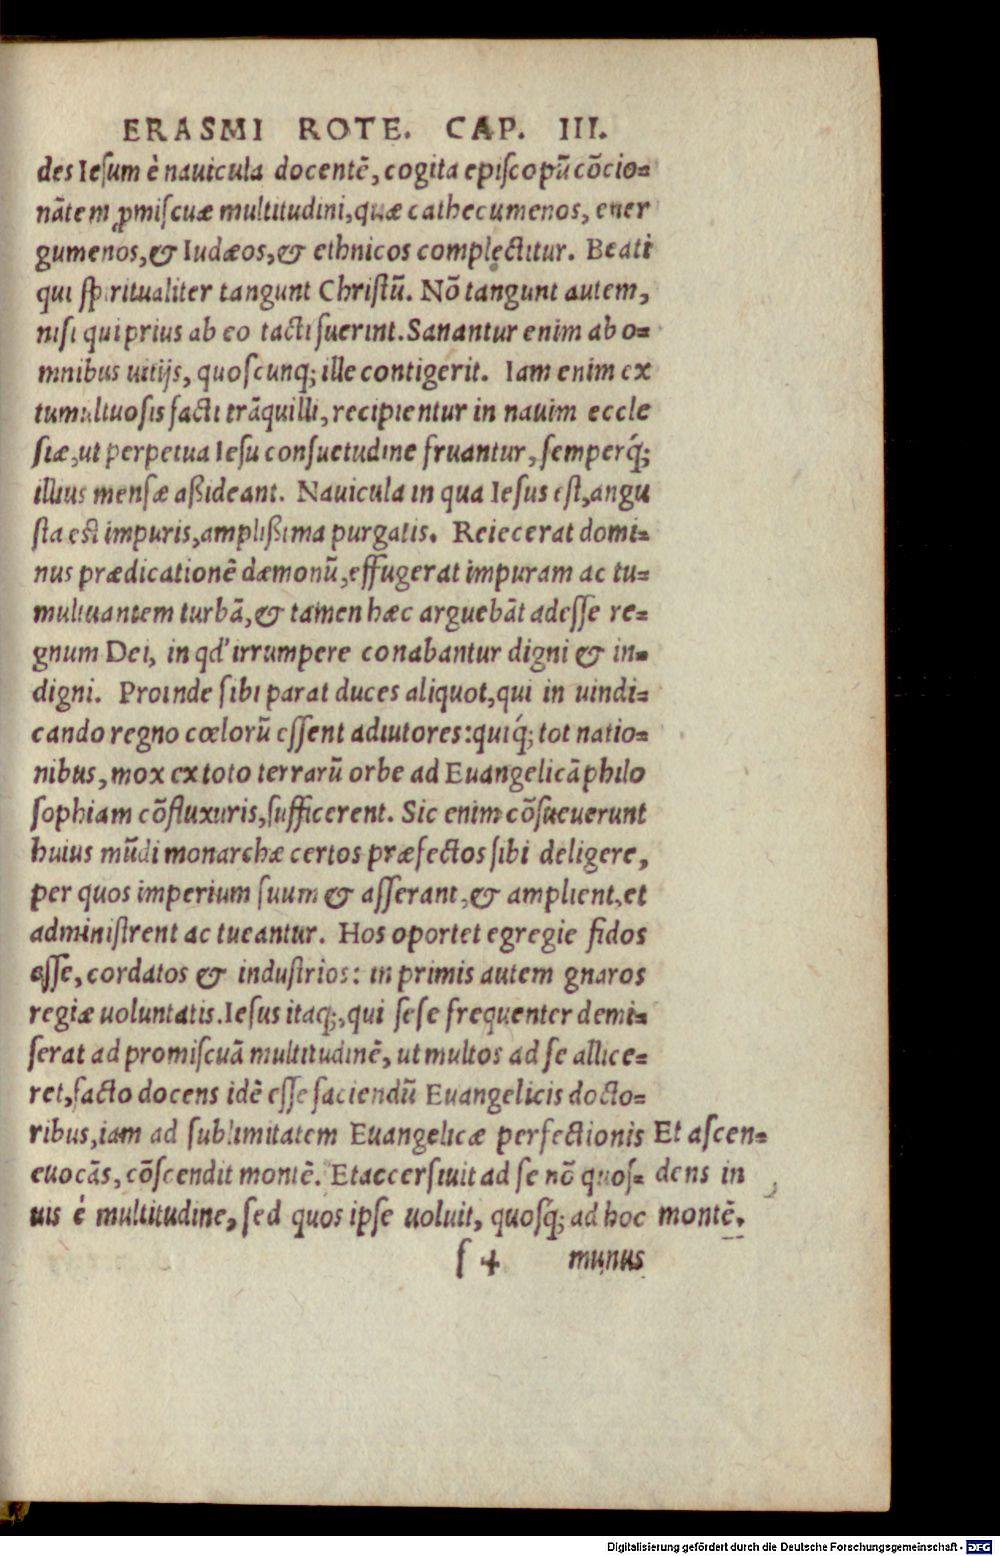 ERASMI ROTE. CAP. III.
des Ieſum è nauicula docentẽ, cogita epiſcopũ cõcio=
nãtem ꝓmiſcuæ multitudini, quæ cathecumenos, ener
gumenos, & Iudæos, & ethnicos complectitur. Beati
qui ſpiritualiter tangunt Chriſtũ. Nõ tangunt autem,
niſi qui prius ab eo tacti fuerint. Sanantur enim ab o=
mnibus uitijs, quoſcunq; ille contigerit. Iam enim ex
tumultuoſis facti trãquilli, recipientur in nauim eccle
ſiæ, ut perpetua Ieſu conſuetudine fruantur, ſemperq́;
illius menſæ aßideant. Nauicula in qua Ieſus eſt, angu
ſta eſt impuris, amplißima purgatis. Reiecerat domi=
nus prædicationẽ dæmonũ, effugerat impuram ac tu=
multuantem turbã, & tamen hæc arguebãt adeſſe re=
gnum Dei, in qd' irrumpere conabantur digni & in=
digni. Proinde ſibi parat duces aliquot, qui in uindi=
cando regno cœlorũ eſſent adiutores: quiq́; tot natio=
nibus, mox ex toto terrarũ orbe ad Euangelicã philo
ſophiam cõfluxuris, ſufficerent. Sic enim cõſueuerunt
huius mũdi monarchæ certos præfectos ſibi deligere,
per quos imperium ſuum & aſſerant, & amplient, et
adminiſtrent ac tueantur. Hos oportet egregie fidos
eſſe, cordatos & induſtrios: in primis autem gnaros
regiæ uoluntatis. Ieſus itaq;, qui ſeſe frequenter demi=
ſerat ad promiſcuã multitudinẽ, ut multos ad ſe allice=
ret, facto docens idẽ eſſe faciendũ Euangelicis docto=
ribus, iam ad ſublimitatem Euangelicæ perfectionis Et aſcen=
euocãs, cõſcendit montẽ. Et accerſiuit ad ſe nõ quoſ= dens in
uis è multitudine, ſed quos ipſe uoluit, quoſq́; ad hoc montẽ.
ſ 4 munus
Digitalisierung gefördert durch die Deutsche Forschungsgemeinschaft - DFG